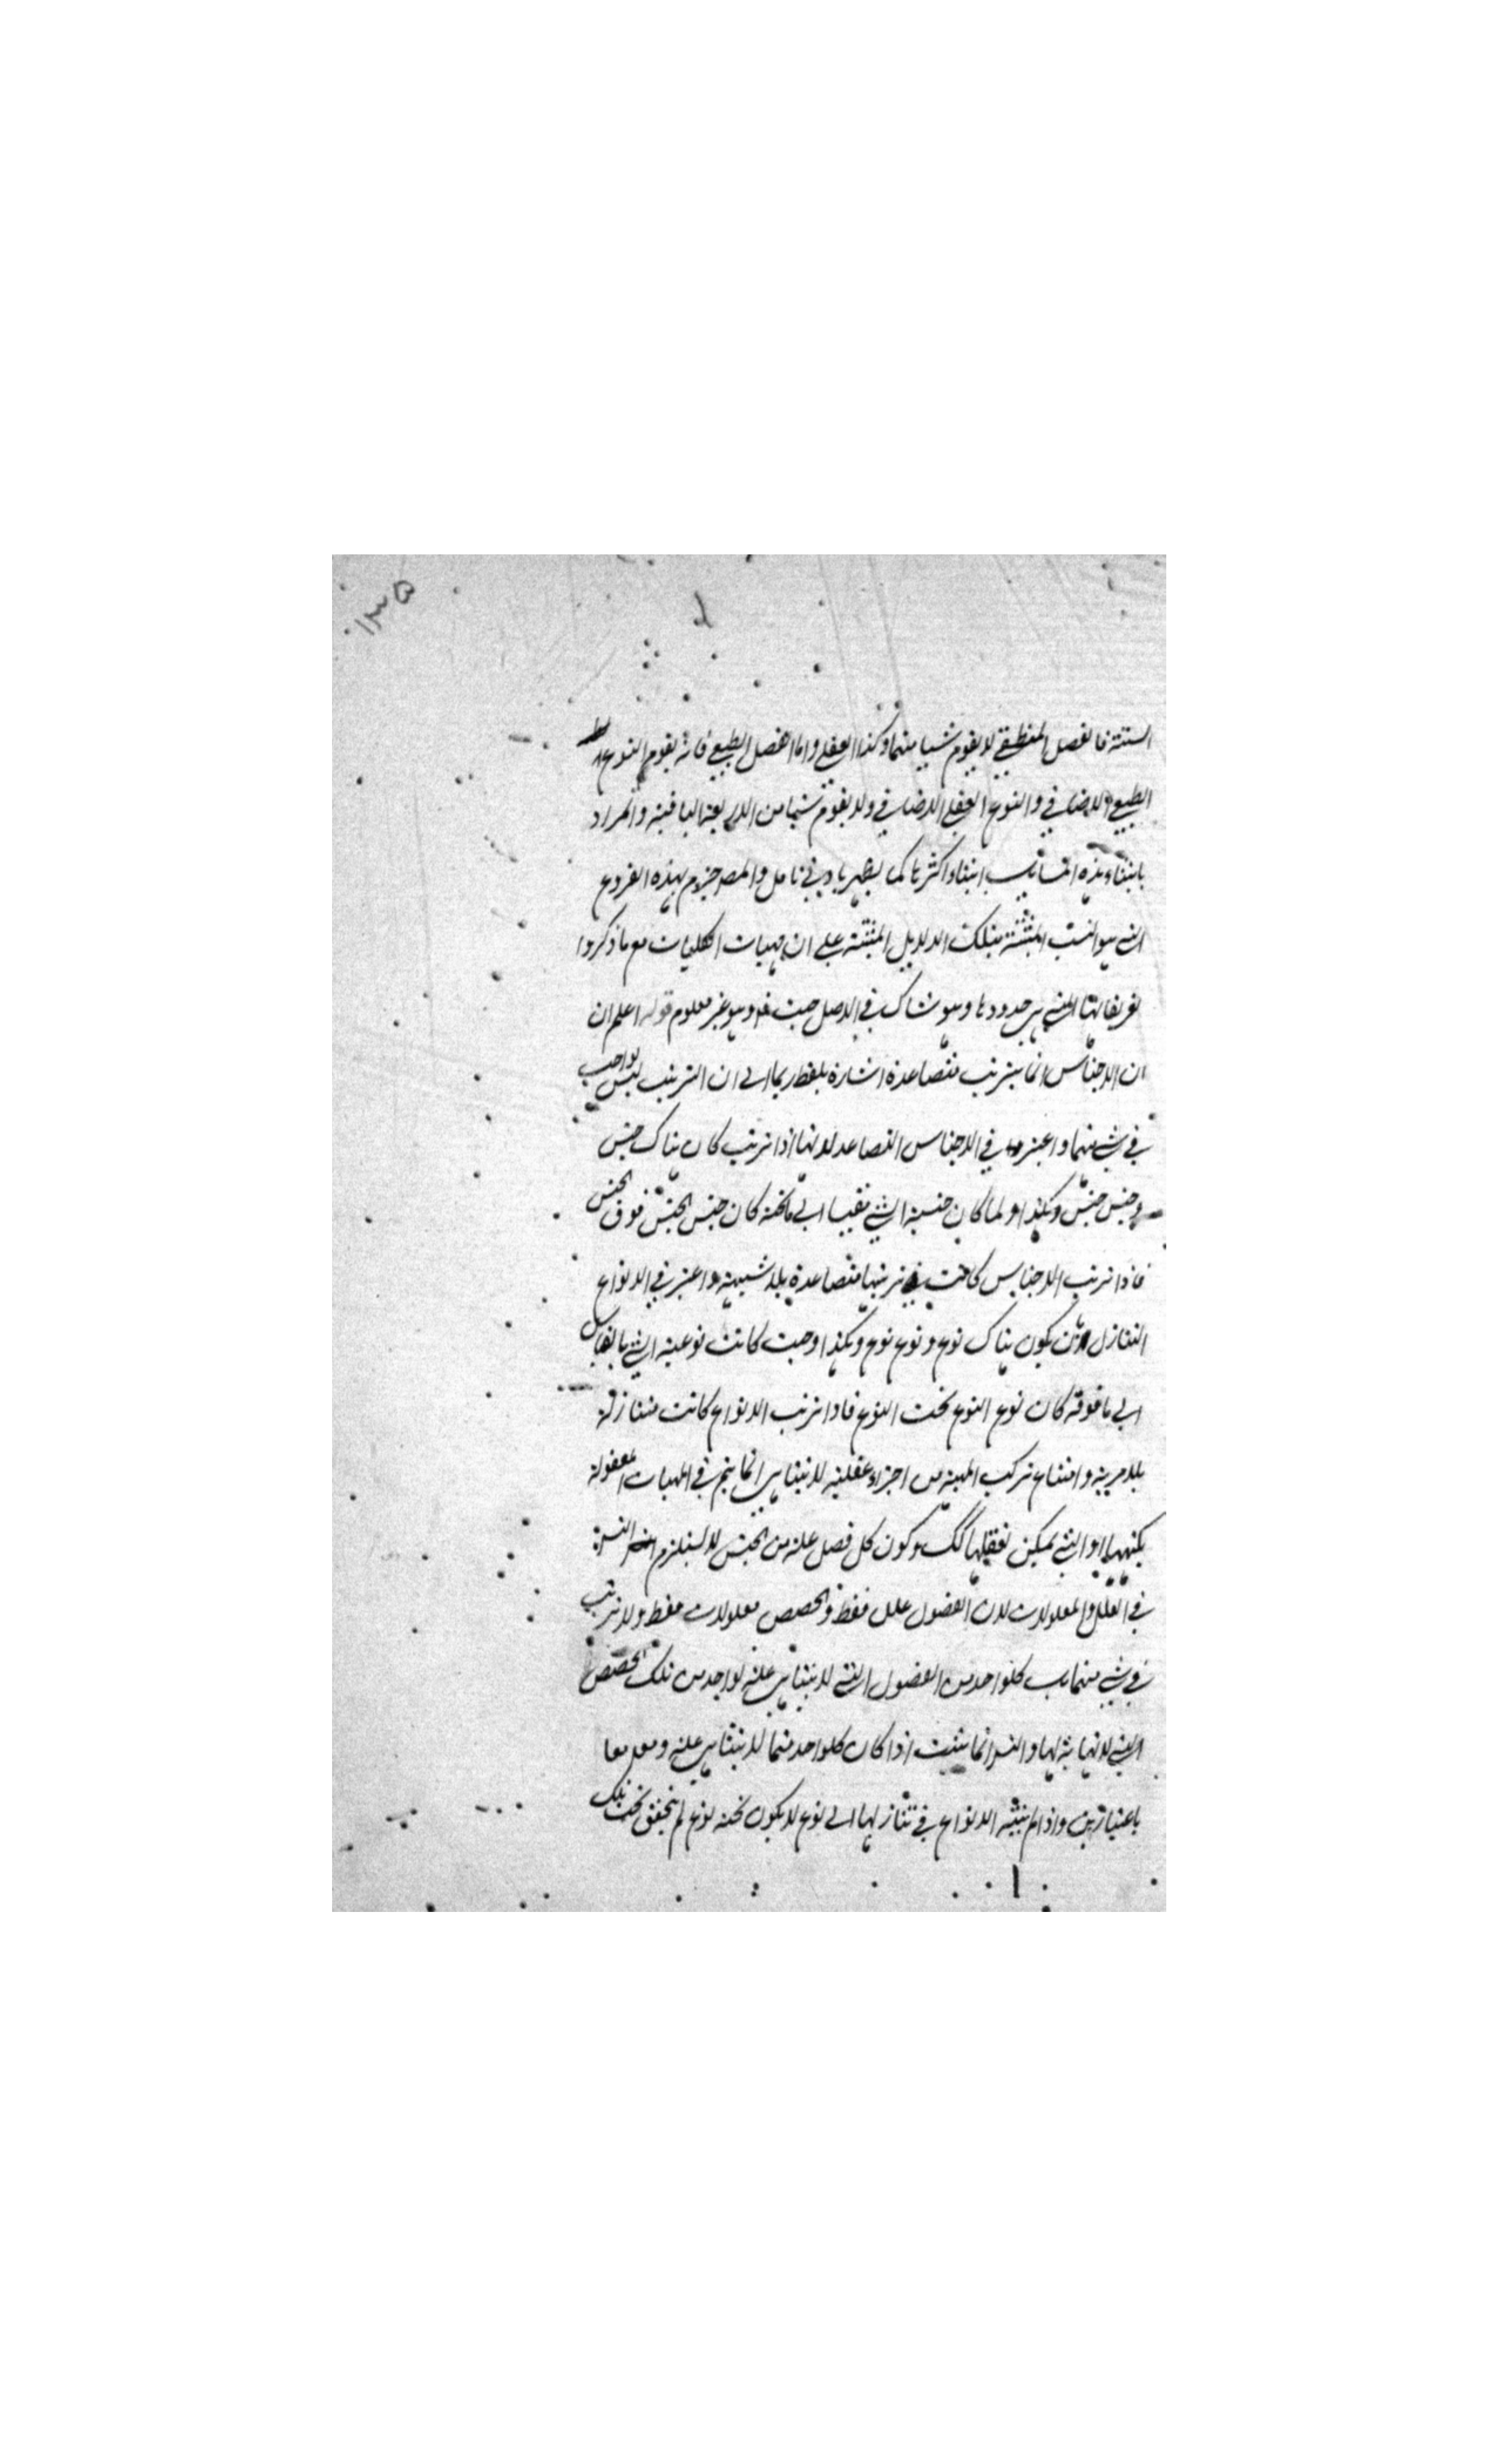 ١٣٥
الستة فالفصل المنطقي لا يقوم شيا منهما وكذا العقلي واما الفصل الطبيعي فانه يقوم النوع
الطبيعي الاضافي والنوع العقلي الاضافي ولا يقوم شيئا من الاربعة الباقية والمراد
بابتناء هذه المسايب ابتناء اكثرها كما يظهر بادني تامل والمص جزم بهذه الفروع
التي هو المثبتة بتلك الدلايل المثبتة علي ان مهيات الكليات مع ما ذكروا
تعريفا لها التي هي حدودها وهو شاك في الاصل حيث وهو غير معلوم قوله اعلم ان
ان الاجناس انما يترتب متصاعدة اشارة بلفظ ربما الي ان الترتيب ليس بواجب
في شي منهما واعتبر في الاجناس التصاعد لانها اذا ترتب كان هناك جنس
وجنس جنس وهكذا ولما كان جنسية الشي مقيسا الي ما تحته كان جنس الجنس فوق الجنس
فاذا ترتب الاجناس كانت في ترتبها متصاعدة بلا شبهة واعتبر في الانواع
التنازل لان يكون هناك نوع ونوع نوع وهكذا وحيث كانت نوعية الشي بالقياس
الي ما فوقه كان نوع النوع تحت النوع فاذا ترتب الانواع كانت متنازلة
بلا مرية وامتناع تركب المهية من اجزاء عقلية لا تتناهي انما يتم في المهيات المعقولة
بكنهها او التي يمكن تعقلها كك وكون كل فصل علة من الجنس لا يستلزم التس
في العلل والمعلولات لان الفصول علل فقط والحصص معلولات فقط ولا ترتب
في شي منهما بل كلواحد من الفصول التي لا تتناهي علة لواحد من تلك الحصص
التي لا نهاية لها والتس انما يثبت اذا كان كلواحد منهما لا يتناهي علة ومعلولا معا
باعتبارين واذا لم ينته الانواع في تنازلها الي نوع لا يكون تحته نوع لم يتحقق تحت تلك